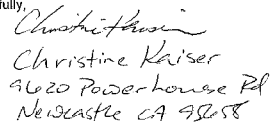 fully,
Christine Kaiser
Christine Kaiser
9620 Powerhouse Rd
Newcastle CA 95658